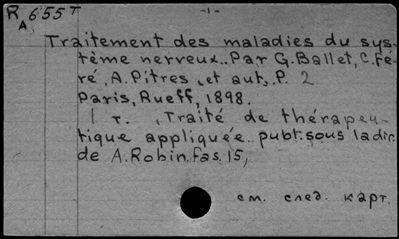 R 655 T
A
-1-
Traitement des maladies du sys-
tème nerveux.. Par G. Ballet, C. Fé-
ré, A. Pitres, et aut., P. 2
Paris, Rueff, 1898.
1 т. , Traité de thérapeu-
tique appliquée.. publ. sous la dir.
de A. Robin. Fas. 15,
см. след. карт.